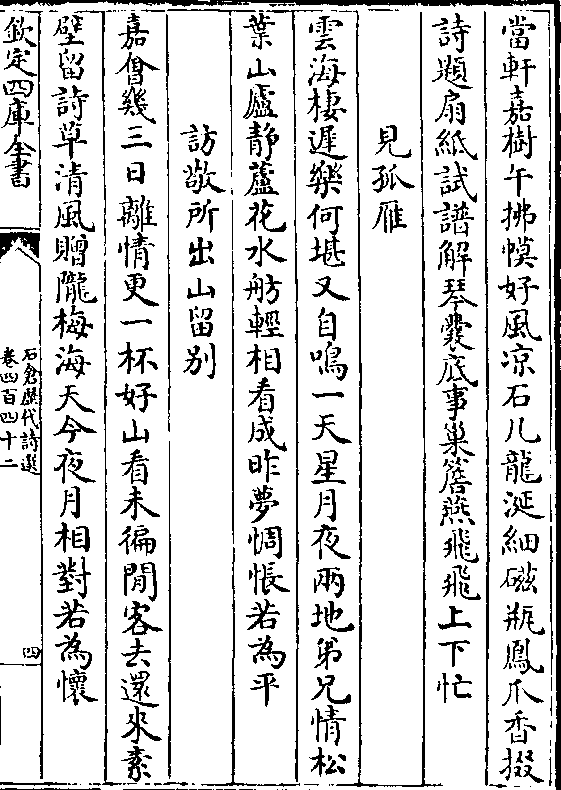 當軒嘉樹午拂幙好風凉石几龍涎細磁瓶鳳爪香掇
詩題扇紙試譜解琴囊底事巢簷燕飛飛上下忙
見孤雁
雲海棲遲樂何堪又自鳴一天星月夜兩地弟兄情松
葉山廬静蘆花水舫輕相看成昨夢惆悵若為平
訪敬所出山留别
嘉會幾三日離情更一杯好山看未徧閒客去還來素
壁留詩草清風贈隴梅海天今夜月相對若為懷
欽定四庫全書
石倉歷代詩選
卷四百四十二
四